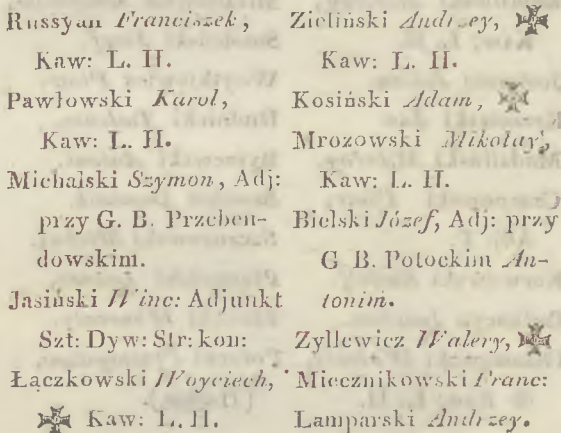 Russyan Franciszek,
Kaw: L. H.
Pawłowski Karol,
Kaw: L. H.
Michalski Szymon, Adj:
przy G. B. Przeben-
dowskim.
Jasiński Winc: Adjunkt
Szt: Dyw: Str: kon:
Łączkowski Woyciech,
Kaw: L. H.
Zieliński Andrzey,
Kaw: L. H.
Kosiński Adam,
Mrozowski Mikołay,
Kaw: L. H.
Bielski Józef, Adj: przy
G B. Potockim An-
tonim.
Zyllewicz Walery,
Miecznikowski Franc:
Lamparski Andrzey.